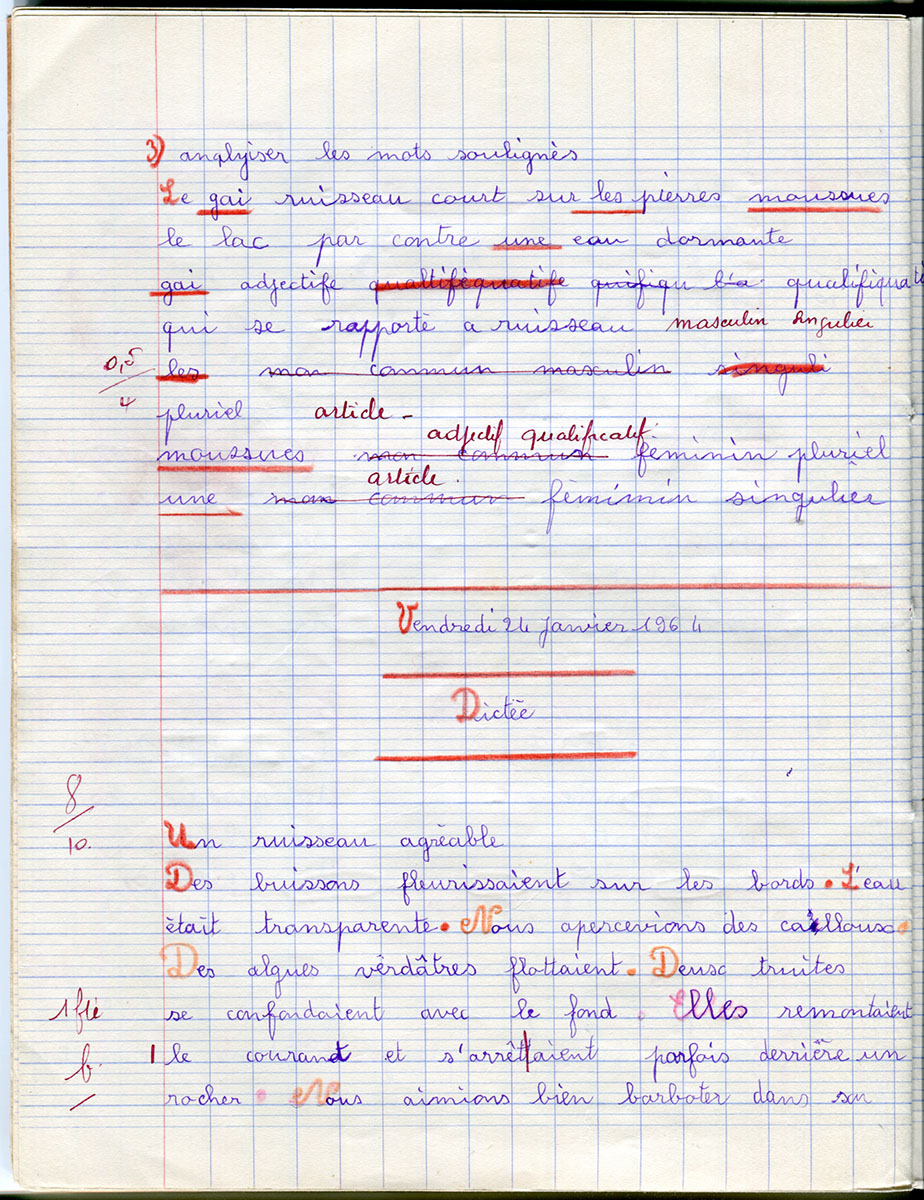 3) anglyiser les mots soulignès
Le gai ruisseau court sur les pierres moussues
le lac par contre une eau dormante
gai adjectife qualtifèquatife quifiqu l'a qualifiquati
qui se rapporte a ruisseau masculin singulier
0,5
4
les mon commun masculin singuli
pluriel article -
adjectif qualificatif.
moussues mon commun fèminin pluriel
article.
une mon commun fèminin singulier
Vendredi 24 janvier 1964
Dictèe
8
10.
Un ruisseau agrèable
Des buissons fleurissaient sur les bords. L'eau
ètait transparente. Nous apercevions des cailloux.
Des algues vèrdâtres flottaient. Deux truites
se confondaient avec le fond. Elles remontaient
le courant et s'arrêtaient parfois derrière un
b.
rocher. Nous aimions bien barboter dans son